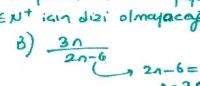 ∈ N⁺ için dizi olmayacağ
B) 3n / 2n-6 → 2n-6=